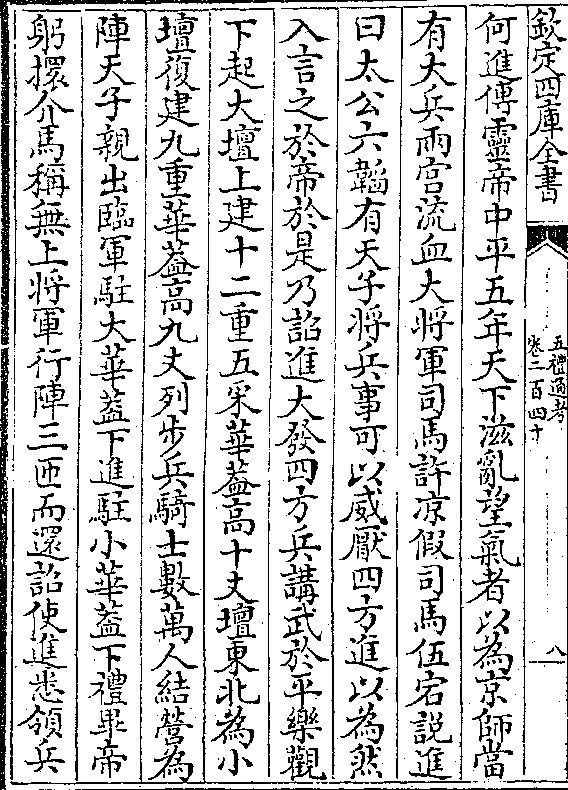 欽定四庫全書
五禮通考
卷二百四十
八
何進傳靈帝中平五年天下滋亂望氣者以為京師當
有大兵兩宫流血大將軍司馬許凉假司馬伍宕說進
曰太公六韜有天子將兵事可以威厭四方進以為然
入言之於帝於是乃詔進大發四方兵講武於平樂觀
下起大壇上建十二重五采華葢高十丈壇東北為小
壇復建九重華葢高九丈列步兵騎士數萬人結營為
陣天子親出臨軍駐大華葢下進駐小華葢下禮畢帝
躬擐介馬稱無上將軍行陣三匝而還詔使進悉領兵